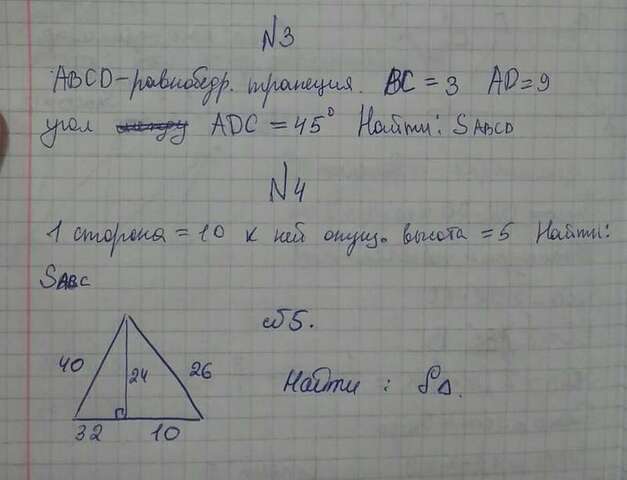 №3
ABCD-равнобедр. трапеция. BC = 3 AD=9
угол ADC = 45° Найти: SABCD
№4
1 сторона = 10 к ней опущ. высота = 5 Найти:
SABC
№5.
40 24 26
Найти : S△.
32 10